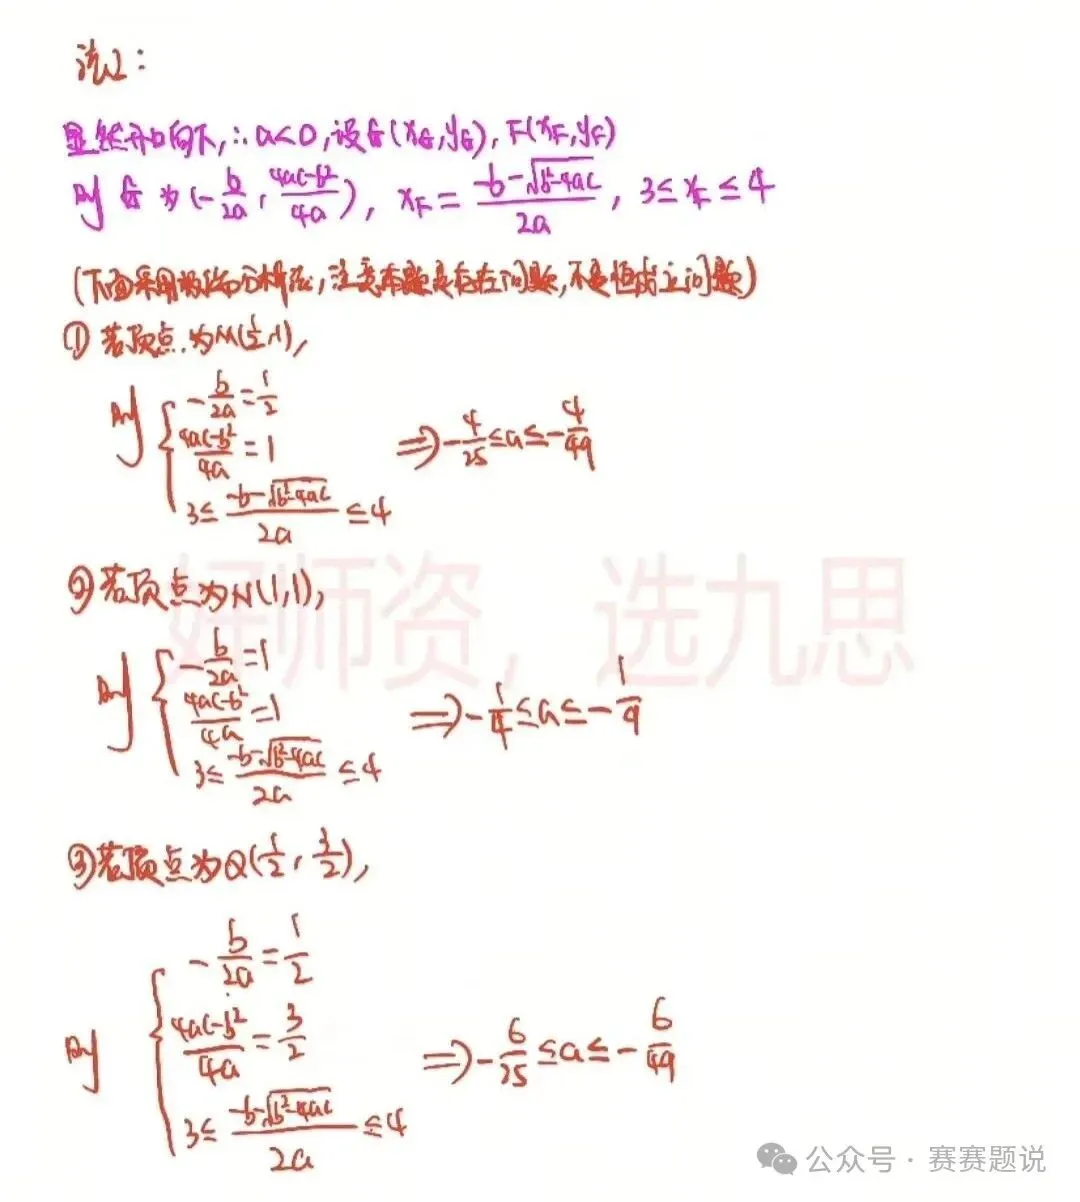 法2：
显然开口向下，∴a<0，设G(x_G,y_G)，F(x_F,y_F)
则 G 为 (-b/2a，(4ac-b²)/4a)，x_F = (-b-√(b²-4ac))/2a，3≤x_F≤4
(下面采用极端分析法，注意本题是存在问题，不是恒成立问题)
① 若顶点为M(1/2,1)，
则 { -b/2a = 1/2
(4ac-b²)/4a = 1 ⇒ -4/25 ≤ a ≤ -4/49
3 ≤ (-b-√(b²-4ac))/2a ≤ 4
② 若顶点为N(1,1)，
则 { -b/2a = 1
(4ac-b²)/4a = 1 ⇒ -1/4 ≤ a ≤ -1/9
3 ≤ (-b-√(b²-4ac))/2a ≤ 4
③ 若顶点为Q(1/2，3/2)，
则 { -b/2a = 1/2
(4ac-b²)/4a = 3/2 ⇒ -6/25 ≤ a ≤ -6/49
3 ≤ (-b-√(b²-4ac))/2a ≤ 4
好师资，选九思
公众号·赛赛题说